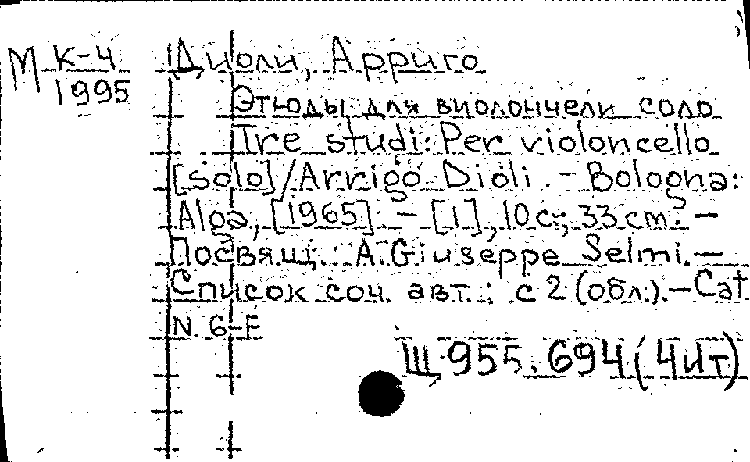 М К-4 Диоли, Арриго
1995
Этюды для виолончели соло
Tre studi: Per violoncello
[solo]/Arrigo Dioli. - Bologna:
Alga, [1965]. - [1], 10 с.; 33 см. -
Посвящ.: A Giuseppe Selmi. -
Список соч. авт.: с 2 (обл.). - Cat
N. 6-E
Щ 955.694 (4Ит)